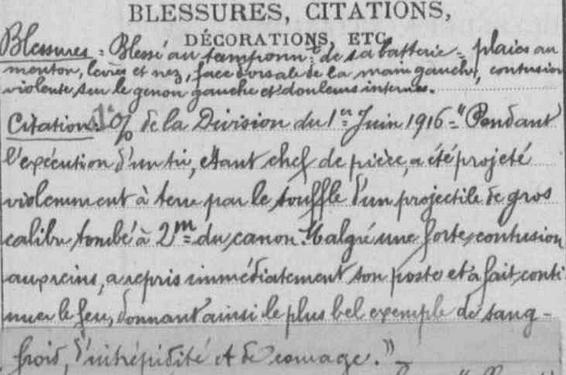 BLESSURES, CITATIONS,
DÉCORATIONS, ETC.
Blessures = Blessé au tamponnt de sa batterie = plaies au
menton, lèvres et nez, face dorsale de la main gauche, contusion
violente sur le genou gauche et douleurs internes.
Citation: 1° O/ de la Division du 1er Juin 1916 = "Pendant
l'exécution d'un tir, étant chef de pièce, a été projeté
violemment à terre par le souffle d'un projectile de gros
calibre tombé à 2m du canon. Malgré une forte contusion
aux reins, a repris immédiatement son poste et a fait conti
nuer le feu, donnant ainsi le plus bel exemple de sang-
froid, d'intrépidité et de courage." _